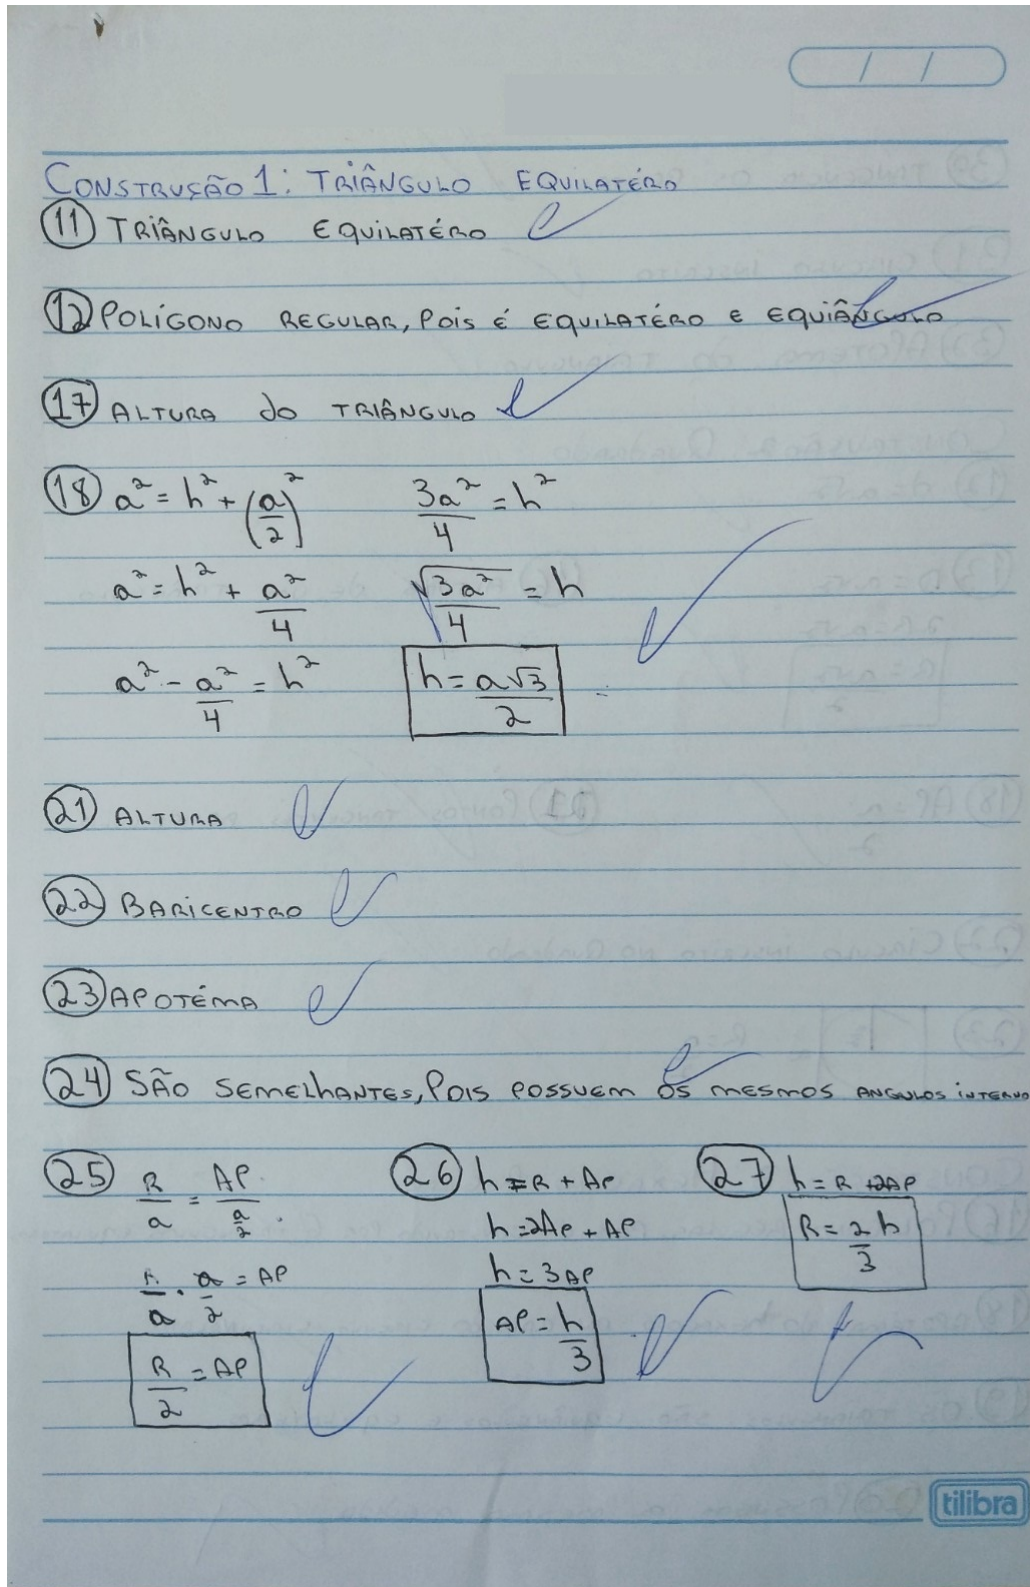 / /
CONSTRUÇÃO 1: TRIÂNGULO EQUILATÉRO
11 TRIÂNGULO EQUILATÉRO
12 POLÍGONO REGULAR, POIS É EQUILATÉRO E EQUIÂNGULO
17 ALTURA do TRIÂNGULO
18 a² = h² + (a/2)² 3a²/4 = h²
a² = h² + a²/4 √3a²/4 = h
a² - a²/4 = h² h = a√3/2 =
21 ALTURA
22 BARICENTRO
23 APOTÉMA
24 SÃO SEMELHANTES, POIS POSSUEM OS MESMOS ANGULOS INTERNO
25 R/a = AP/(a/2) 26 h = R + AP 27 h = R + 2AP
h = 2AP + AP R = 2h/3
R/a . a/2 = AP h = 3AP
R/2 = AP AP = h/3
tilibra